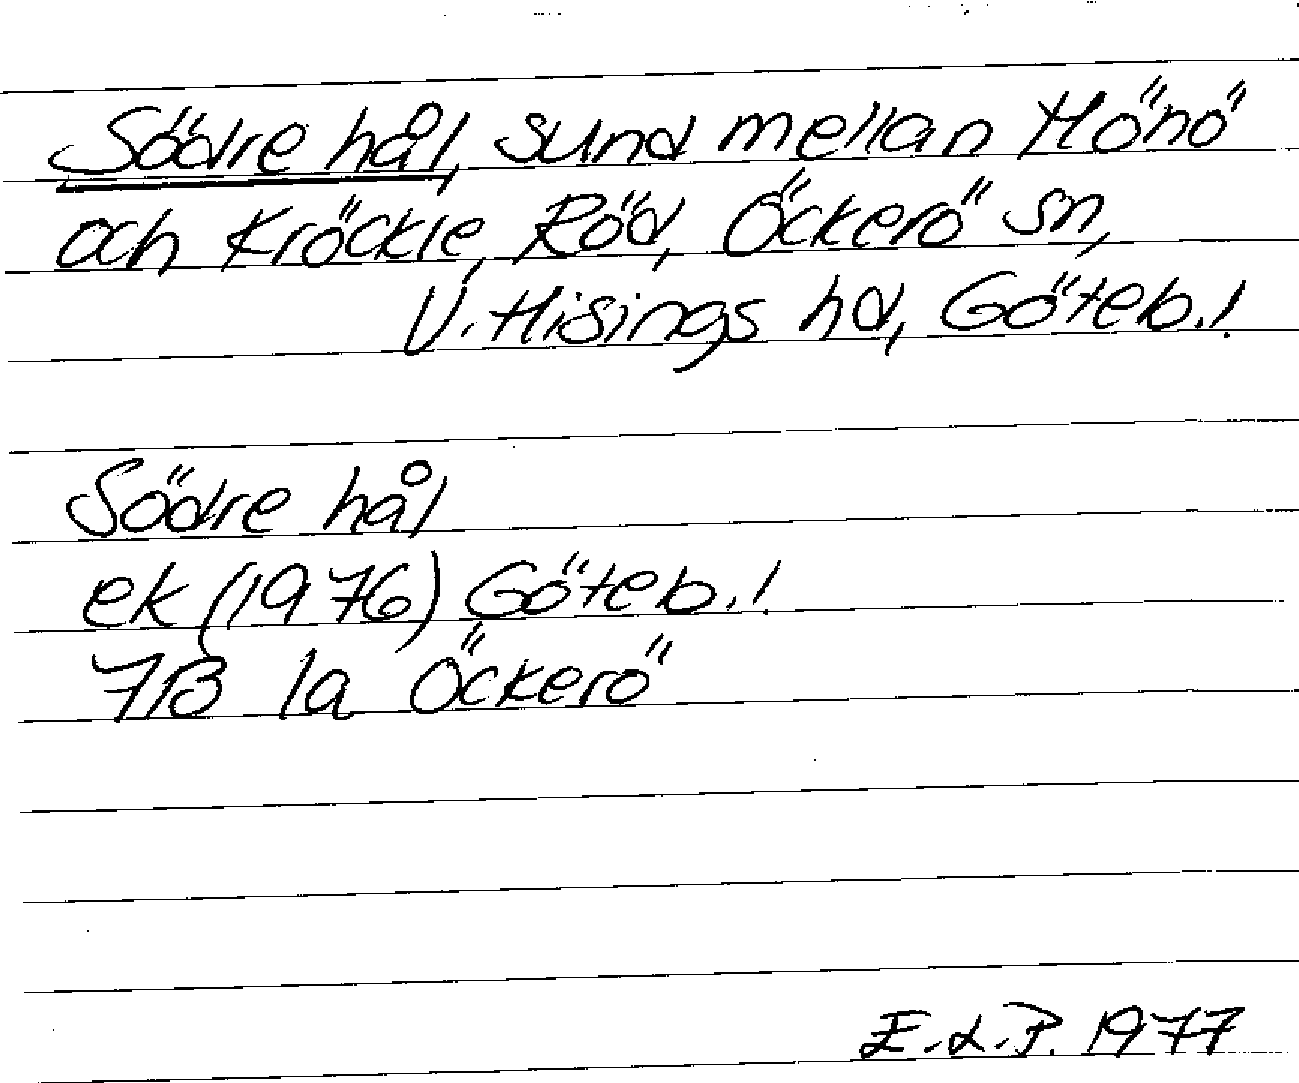 Södre hål, sund mellan Hönö
och Kröckle, Röd, Öckerö sn,
V. Hisings hd, Göteb.!
Södre hål
ek (1976) Göteb.!
7B 1a Öckerö
E.L.P. 1977